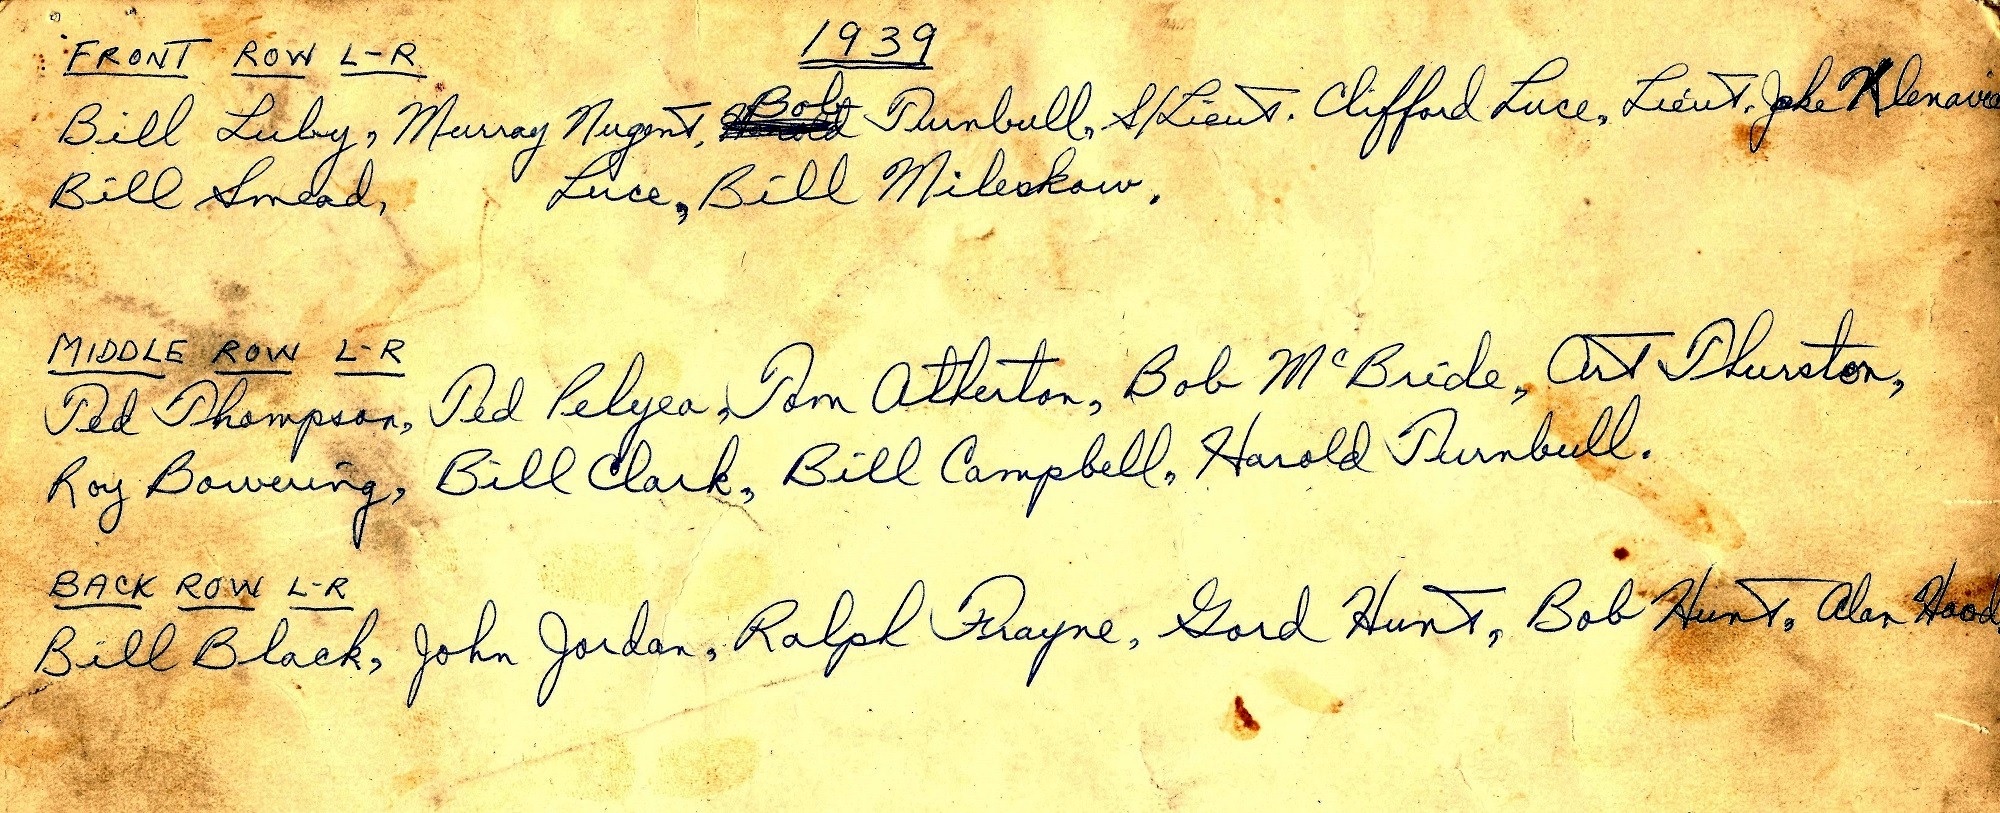 1939
FRONT ROW L-R
Bill Luby, Murray Nugent, Bob Turnbull, S/Lieut. Clifford Luce, Lieut. Jake
Bill Smead, Luce, Bill Mileskow.
MIDDLE ROW L-R
Ted Thompson, Ted Pelyea, Tom Atherton, Bob McBride, Art Thurston,
Roy Bowering, Bill Clark, Bill Campbell, Harold Turnbull.
BACK ROW L-R
Bill Black, John Jordan, Ralph Frayne, Gord Hunt, Bob Hunt, Alan Hood,